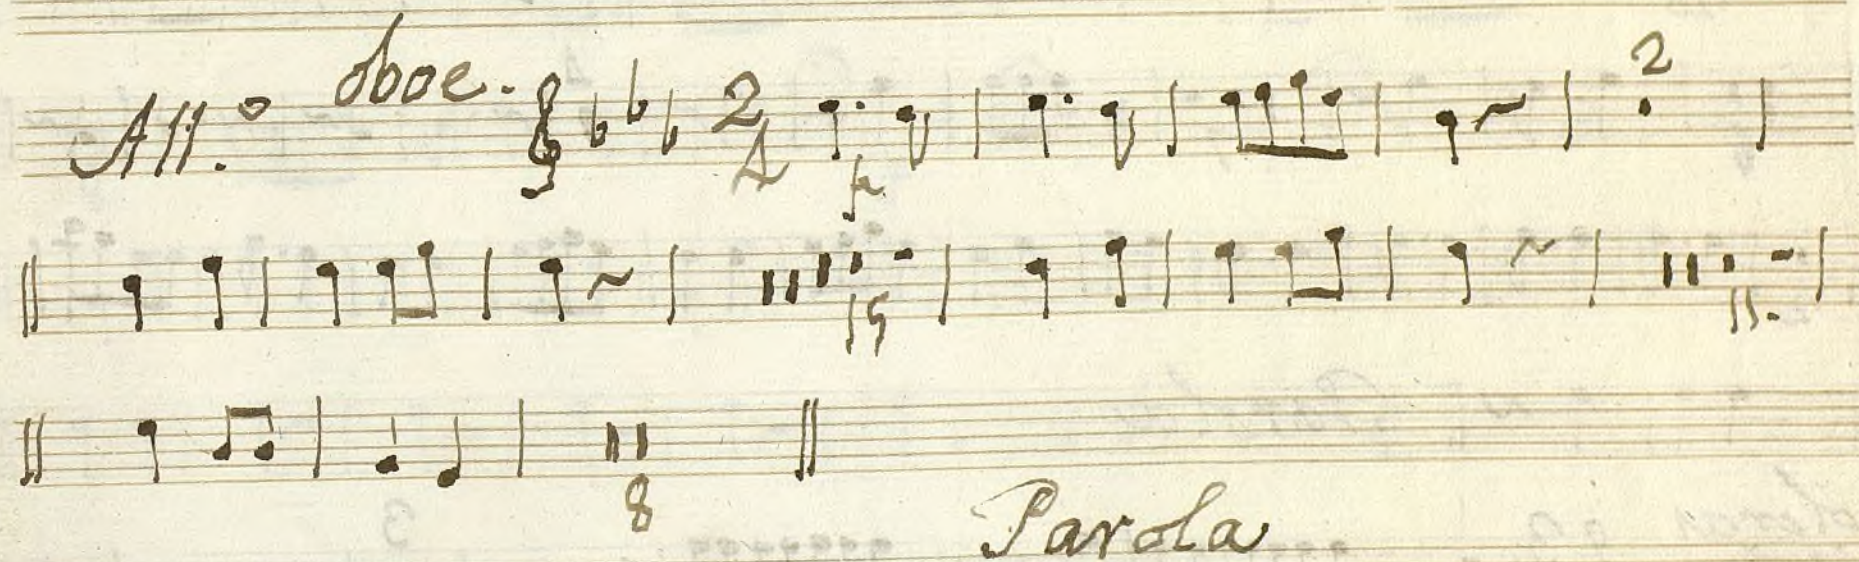 All.o oboe.
2
2
4
p
15
11.
8
Parola